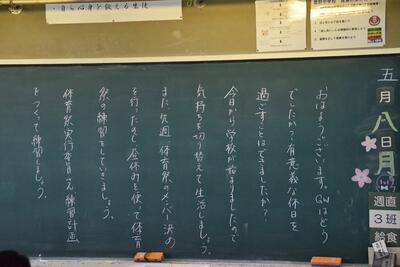 自ら心身を鍛える生徒
おはようございます。GWはどう
でしたか？有意義な休日を
過ごすことはできましたか？
今日から学校が始まりましたので
気持ちを切り替えて生活しましょう。
また、先週、体育祭のメンバー決め
を行ったので、昼休みを使って体育
祭の練習をしていきましょう。
体育祭実行委員さん、練習計画
をつくって練習しましょう。
五月八日月
週直
3班
給食